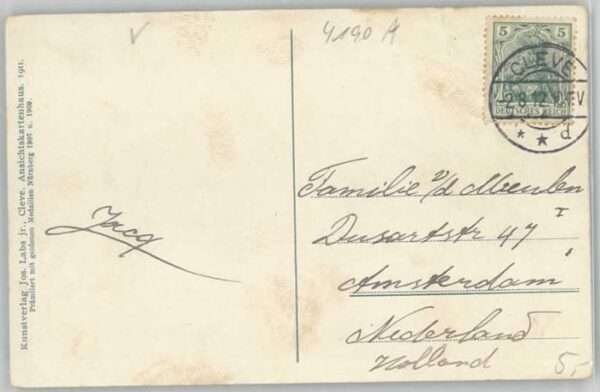 4190 A
5 5
DEUTSCHES REICH
CLEVE
-2.8.12.
d
Familie v/d Meulen
Dusartstr 47 I
Amsterdam
Nederland
Holland
5,-
Jacq
Kunstverlag Jos. Labs jr., Cleve. Ansichtskartenhaus. 1911.
Prämiiert mit goldenen Medaillen Nürnberg 1907 u. 1909.